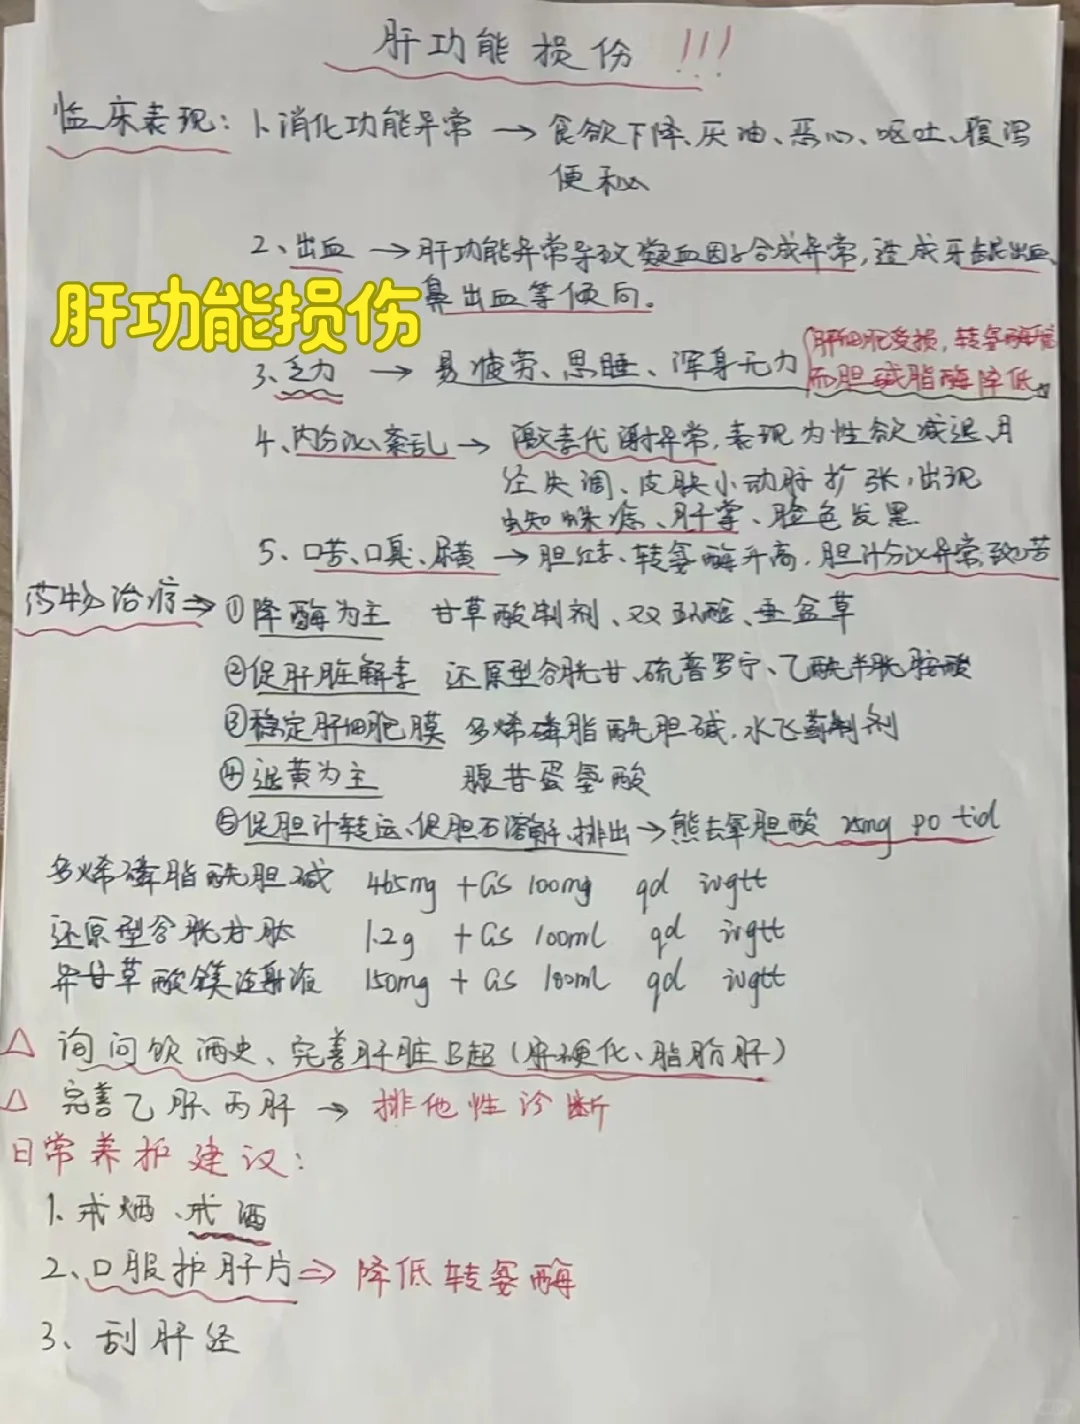 肝功能损伤!!!
临床表现: 1、消化功能异常 → 食欲下降、厌油、恶心、呕吐、腹泻
便秘
2、出血 → 肝功能异常导致凝血因子合成异常,造成牙龈出血、
鼻出血等倾向。
肝功能损伤
3、乏力 → 易疲劳、思睡、浑身无力
肝细胞受损,转氨酶
而胆碱脂酶降低。
4、内分泌紊乱 → 激素代谢异常,表现为性欲减退、月
经失调、皮肤小动脉扩张,出现
蜘蛛痣、肝掌、脸色发黑.
5、口苦、口臭、尿黄 → 胆红素、转氨酶升高,胆汁分泌异常,致口苦
药物治疗 ⇒ ①降酶为主 甘草酸制剂、双环醇、垂盆草
②促肝脏解毒 还原型谷胱甘、硫普罗宁、乙酰半胱胺酸
③稳定肝细胞膜 多烯磷脂酰胆碱.水飞蓟制剂
④退黄为主 腺苷蛋氨酸
⑤促胆汁转运、促胆石溶解、排出 → 熊去氧胆酸 25mg po tid
多烯磷脂酰胆碱 465mg + GS 100mg qd ivgtt
还原型谷胱甘肽 1.2g + GS 100ml qd ivgtt
异甘草酸镁注射液 150mg + GS 100ml qd ivgtt
△ 询问饮酒史、完善肝脏B超(肝硬化、脂肪肝)
△ 完善乙肝、丙肝 → 排他性诊断
日常养护建议:
1、戒烟、戒酒
2、口服护肝片 ⇒ 降低转氨酶
3、刮肝经